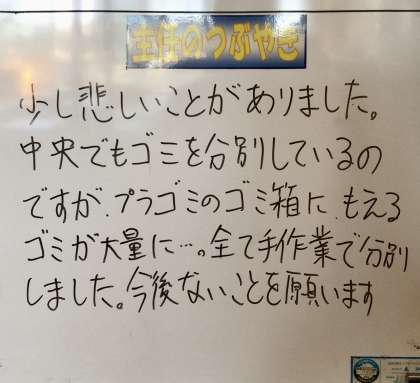 主任のつぶやき
少し悲しいことがありました。
中央でもゴミを分別しているの
ですが、プラゴミのゴミ箱に、もえる
ゴミが大量に…。全て手作業で分別
しました。今後ないことを願います